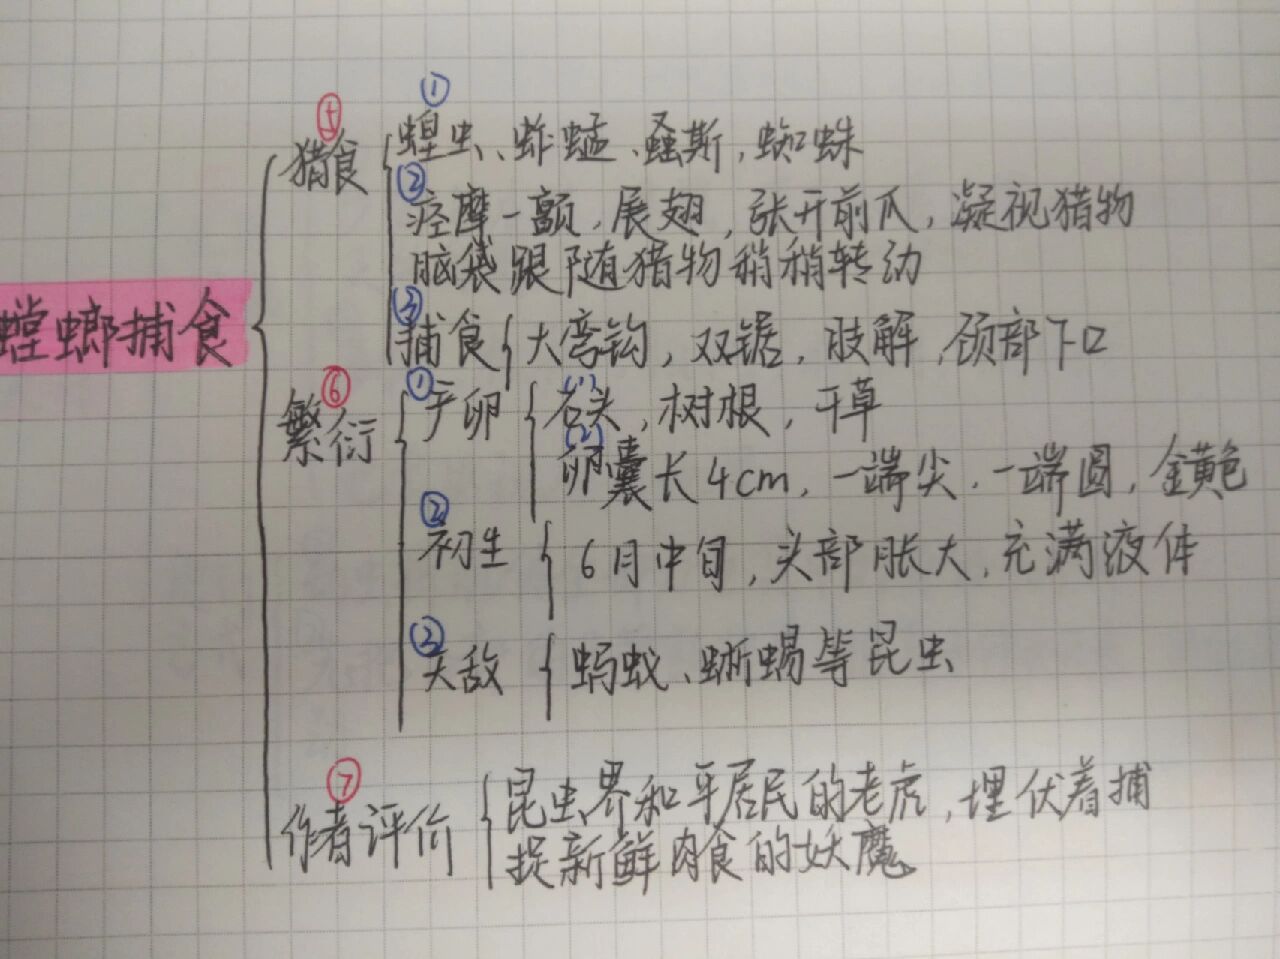 ①
⑤
猎食
蝗虫、蚱蜢、螽斯，蜘蛛
②
痉挛一颤，展翅，张开前爪，凝视猎物
脑袋跟随猎物稍稍转动
螳螂捕食
③
捕食 大弯钩，双锯，肢解，颈部下口
⑥
繁衍
①
产卵
(1)
石头，树根，干草
(2)
卵囊长4cm，一端尖，一端圆，金黄色
②
初生 6月中旬，头部胀大，充满液体
③
天敌 蚂蚁、蜥蜴等昆虫
⑦
作者评价
昆虫界和平居民的老虎，埋伏着捕
捉新鲜肉食的妖魔